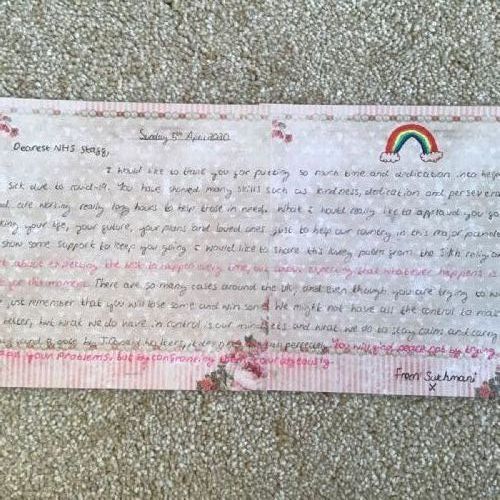 Sunday 5th April 2020
Dearest NHS Staff,
I would like to thank you for putting so much time and dedication into
sick due to covid-19. You have showed many skills such as kindness, dedication and
are working really long hours to help those in need. What I would really like to applaud you
your life, your future, your plans and loved ones just to help our country in this major
show some support to keep you going I would like to share this lovely poem from the Sikh
about expecting the best to happen every time, but about expecting that whatever happens is
the moment. There are so many cases around the UK and even though you are trying to
just remember that you will lose some and win some. We might not have all the control to
better, but what we do have in control is our mindsets and what we do to stay calm and carry
by perfectly. You will find peace not by trying
your problems, but by confronting them courageously.
From Sukhmani
x